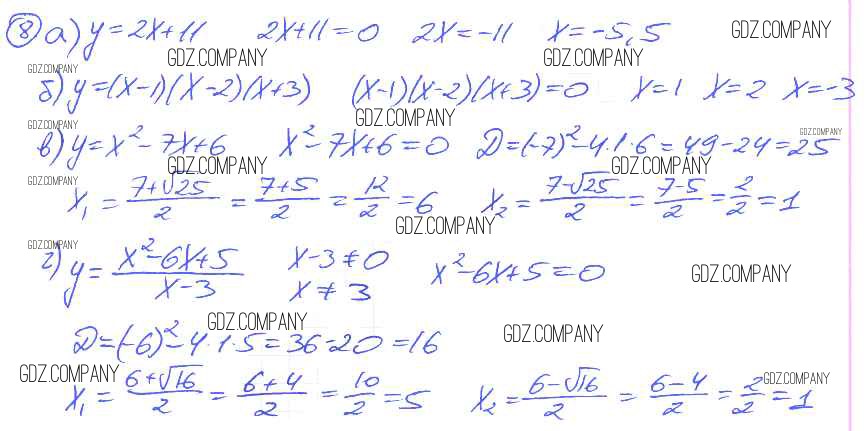 8 а) y = 2x+11 2x+11=0 2x=-11 x=-5,5
GDZ.COMPANY GDZ.COMPANY GDZ.COMPANY
GDZ.COMPANY
б) y=(x-1)(x-2)(x+3) (x-1)(x-2)(x+3)=0 x=1 x=2 x=-3
GDZ.COMPANY GDZ.COMPANY GDZ.COMPANY
в) y=x²-7x+6 x²-7x+6=0 D=(-7)²-4·1·6=49-24=25
GDZ.COMPANY GDZ.COMPANY
GDZ.COMPANY
x₁ = (7+√25)/2 = (7+5)/2 = 12/2 = 6 x₂ = (7-√25)/2 = (7-5)/2 = 2/2 = 1
GDZ.COMPANY
GDZ.COMPANY
г) y = (x²-6x+5)/(x-3) x-3≠0 x²-6x+5=0
x≠3
GDZ.COMPANY
GDZ.COMPANY GDZ.COMPANY
D=(-6)²-4·1·5=36-20=16
GDZ.COMPANY GDZ.COMPANY
x₁ = (6+√16)/2 = (6+4)/2 = 10/2 = 5 x₂ = (6-√16)/2 = (6-4)/2 = 2/2 = 1